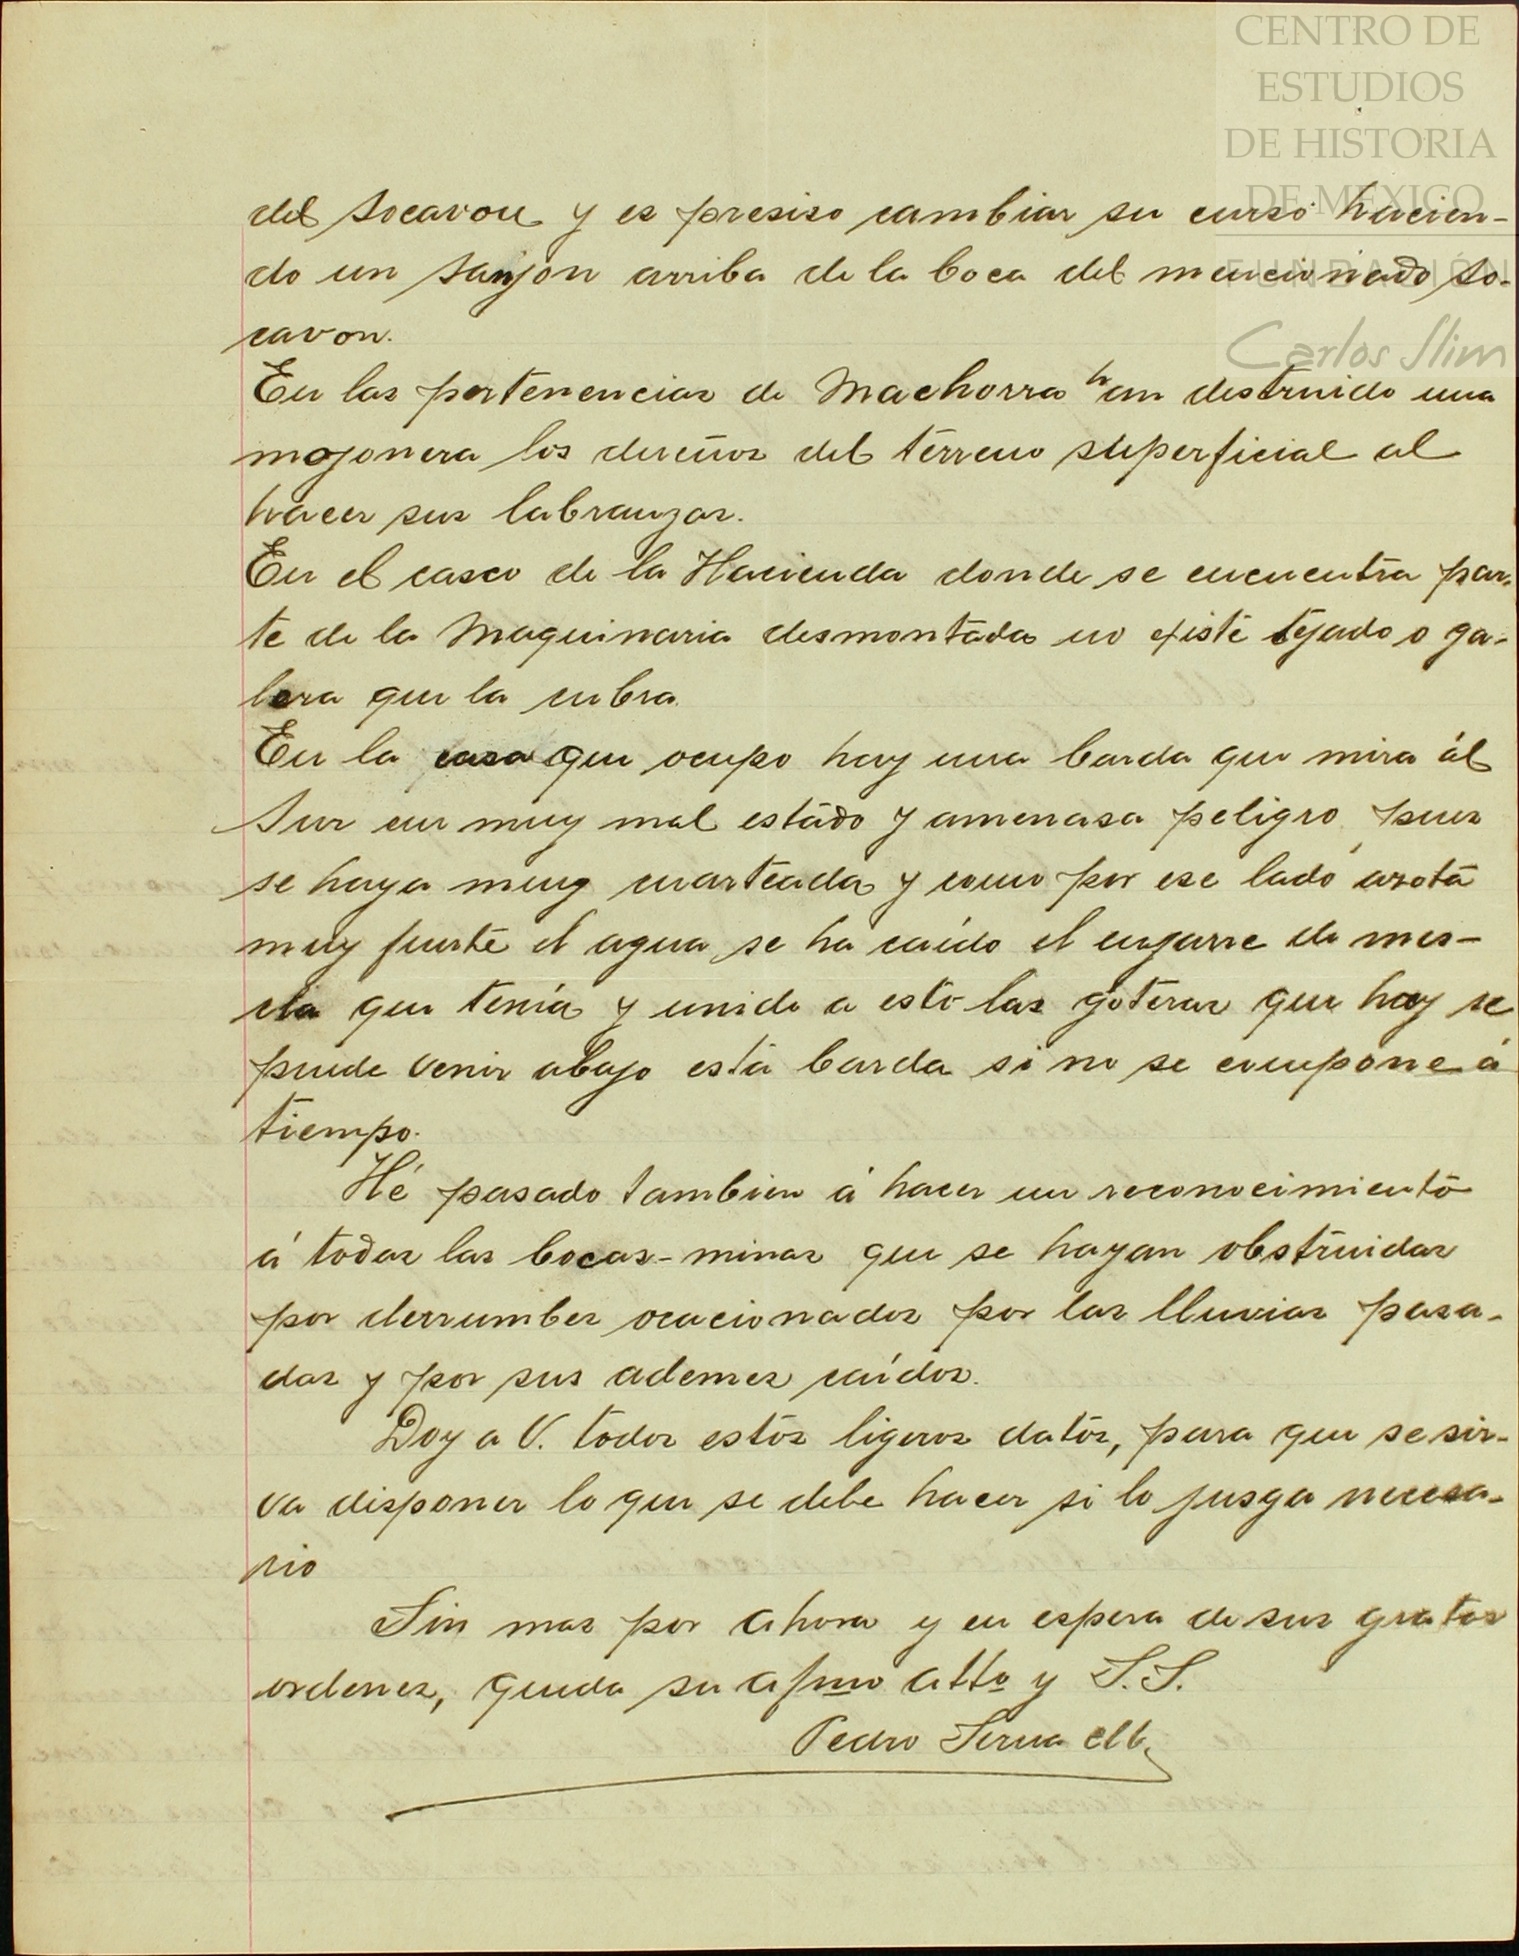 CENTRO DE
ESTUDIOS
DE HISTORIA
DE MÉXICO
FUNDACIÓN
Carlos Slim
del socavon y es presiso cambiar su curso hacien-
do un sanjon arriba de la boca del mencionado so-
cavon.
En las pertenencias de Machorra han destruido una
mojonera los dueños del terreno superficial al
hacer sus labranzas.
En el casco de la Hacienda donde se encuentra par-
te de la Maquinaria desmontada no existe tejado o ga-
lera que la cubra.
En la casa que ocupo hay una barda que mira ál
Sur en muy mal estado y amenasa peligro, pues
se haya muy cuarteada y como por ese lado azota
muy fuerte el agua se ha caído el enjarre de mes-
cla que tenía y unido a esto las goteras que hay se
puede venir abajo está barda si no se compone á
tiempo.
Hé pasado tambien á hacer un reconocimiento
á todas las bocas-minas que se hayan obstruidas
por derrumbes ocacionados por las lluvias pasa-
das y por sus ademes caídos.
Doy a V. todos estos ligeros datos, para que se sir-
va disponer lo que se debe hacer si lo jusga necesa-
rio
Sin mas por ahora y en espera de sus gratas
ordenes, queda su afmo atto y S.S.
Pedro Serna